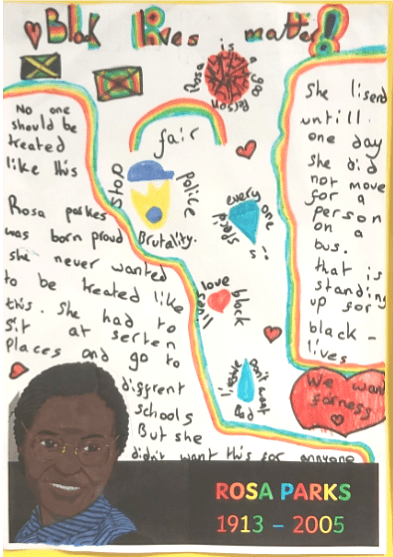 Black lives matter!
Rosa is a goo person
fair
No one
should be
treated
like this
Stop
Police
Brutality.
every one is
love black
lives
Don't want
Bad
Rosa parkes
was born proud
she never wanted
to be treated like
this. She had to
Sit at serten
Places and go to
diffrent
schools
But she
didn't want this for annyone
She lisend
untill
one day
she did
not move
for a
person
on a
bus.
that is
standing
up for
black -
lives
We want
fairness
ROSA PARKS
1913 – 2005